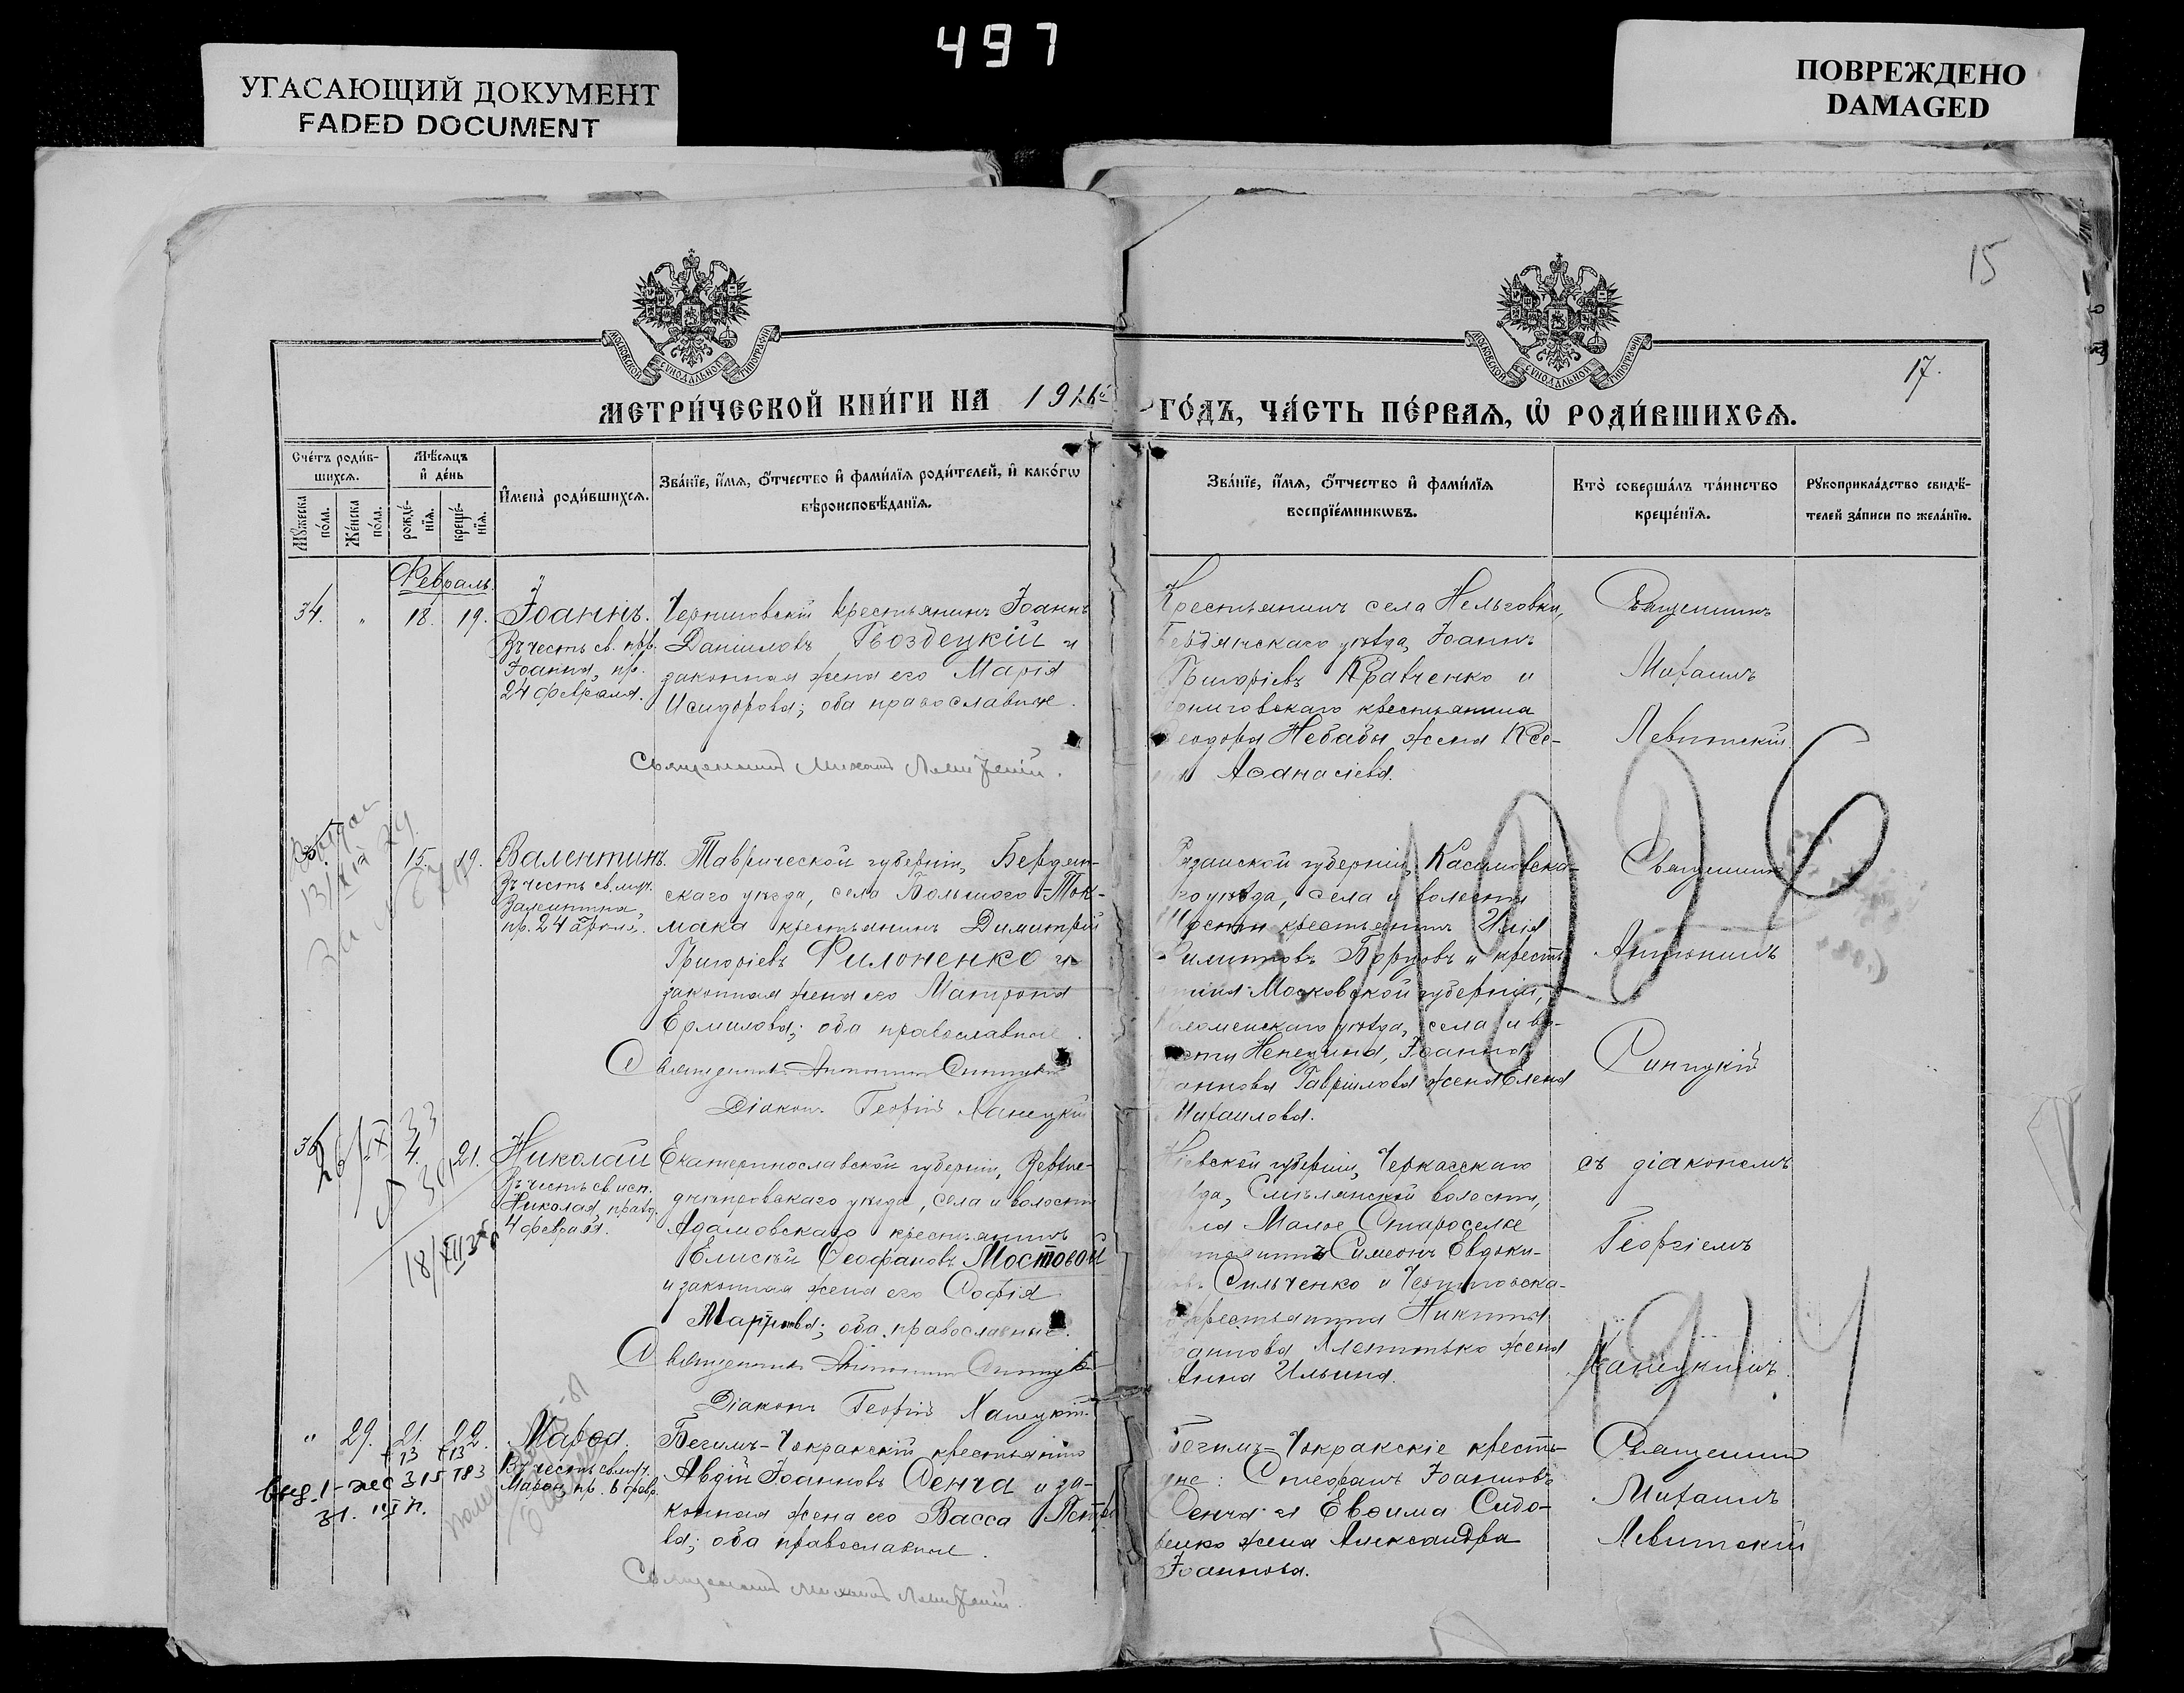 497
УГАСАЮЩИЙ ДОКУМЕНТ
FADED DOCUMENT
ПОВРЕЖДЕНО
DAMAGED
15
17.
МОСКОВСКОЙ СѴНОДАЛЬНОЙ ТИПОГРАФІИ
МОСКОВСКОЙ СѴНОДАЛЬНОЙ ТИПОГРАФІИ
МЕТРИ́ЧЕСКОЙ КНИ́ГИ НА 1916
ГО́ДЪ, ЧА́СТЬ ПЕ́РВАЯ, Ѡ РОДИ́ВШИХСЯ.
Сче́тъ роди́в-
шихся.
Мѣ́сяцъ
и҆ де́нь
Му́жеска
по́ла.
Же́нска
по́ла.
рожде́-
нїя.
креще́-
нїя.
И҆мена̀ роди́вшихся.
Зва́нїе, и҆́мя, ѻ҆́тчество и҆ фами́лїя роди́телей, и҆ како́гѡ
вѣроисповѣ́данїя.
Зва́нїе, и҆́мя, ѻ҆́тчество и҆ фами́лїя
воспрїе́мникѡвъ.
Кто̀ соверша́лъ та́инство
креще́нїя.
Рꙋкоприкла́дство свидѣ́-
телей за́писи по жела́нїю.
Февраль.
34. " 18. 19. Іоаннъ.
Въ честь св. прп.
Іоанна, пр.
24 февраля.
Черниговскій крестьянинъ Іоаннъ
Даніиловъ Гвоздецкій и
законная жена его Марія
Исидорова; оба православные.
Священникъ Михаилъ Левитскій.
Крестьянинъ села Нельговки,
Бердянскаго уѣзда, Іоаннъ
Григоріевъ Кравченко и
Черниговскаго крестьянина
Ѳеодора Небабы жена Ксе-
Аѳанасіева.
Священникъ
Михаилъ
Левитскій
15. 19. Валентинъ.
Въ честь св. муч.
Валентина,
пр. 24 Апрѣля.
Таврической губерніи, Бердян-
скаго уѣзда, села Большого-Ток-
мака крестьянинъ Димитрій
Григоріевъ Филоненко и
законная жена его Матрона
Ермилова; оба православные.
Священникъ Антонинъ Синицкій
Діаконъ Георгій Ханецкій
Рязанской губерніи, Касимовска-
го уѣзда, села и волости
крестьянинъ Илія
Филипповъ Борцовъ и кресть-
Московской губерніи,
Коломенскаго уѣзда, села и во-
лости Ненецина, Іоанна
Іоаннова Гавріилова жена Елена
Михаилова.
Священникъ
Антонинъ
Синицкій
1926
36. 4. 21. Николай
Въ честь св. исп.
Николая, празд.
4 февраля.
18/XII 35
Екатеринославской губерніи, Верхне-
днѣпровскаго уѣзда, села и волости
Адамовскаго крестьянинъ
Елисѣй Ѳеофановъ Мостовой
и законная жена его Софія
Мартинова; оба православные.
Священникъ Антонинъ Синицкій
Діаконъ Георгій Ханецкій.
Кіевской губерніи, Черкасскаго
уѣзда, Смѣлянской волости,
села Малое Староселье
крестьянинъ Симеонъ Евдоки-
мовъ Сильченко и Черниговска-
го крестьянина Никиты
жена
Анна Ильина.
съ діакономъ
Георгіемъ
Ханецкимъ.
" 29. 21. 22. Марѳа.
Въ честь св. муч.
Марѳы, пр. 6 февр.
Бегимъ-Чокракскій крестьянинъ
Авдій Іоанновъ Сенча и за-
конная жена его Васса Петро-
ва; оба православные.
Священникъ Михаилъ Левитскій.
Бегимъ-Чокракскіе кресть-
яне: Стефанъ Іоанновъ
Сенча и Евѳима Сидо-
ренко жена Александра
Іоаннова.
Священникъ
Михаилъ
Левитскій